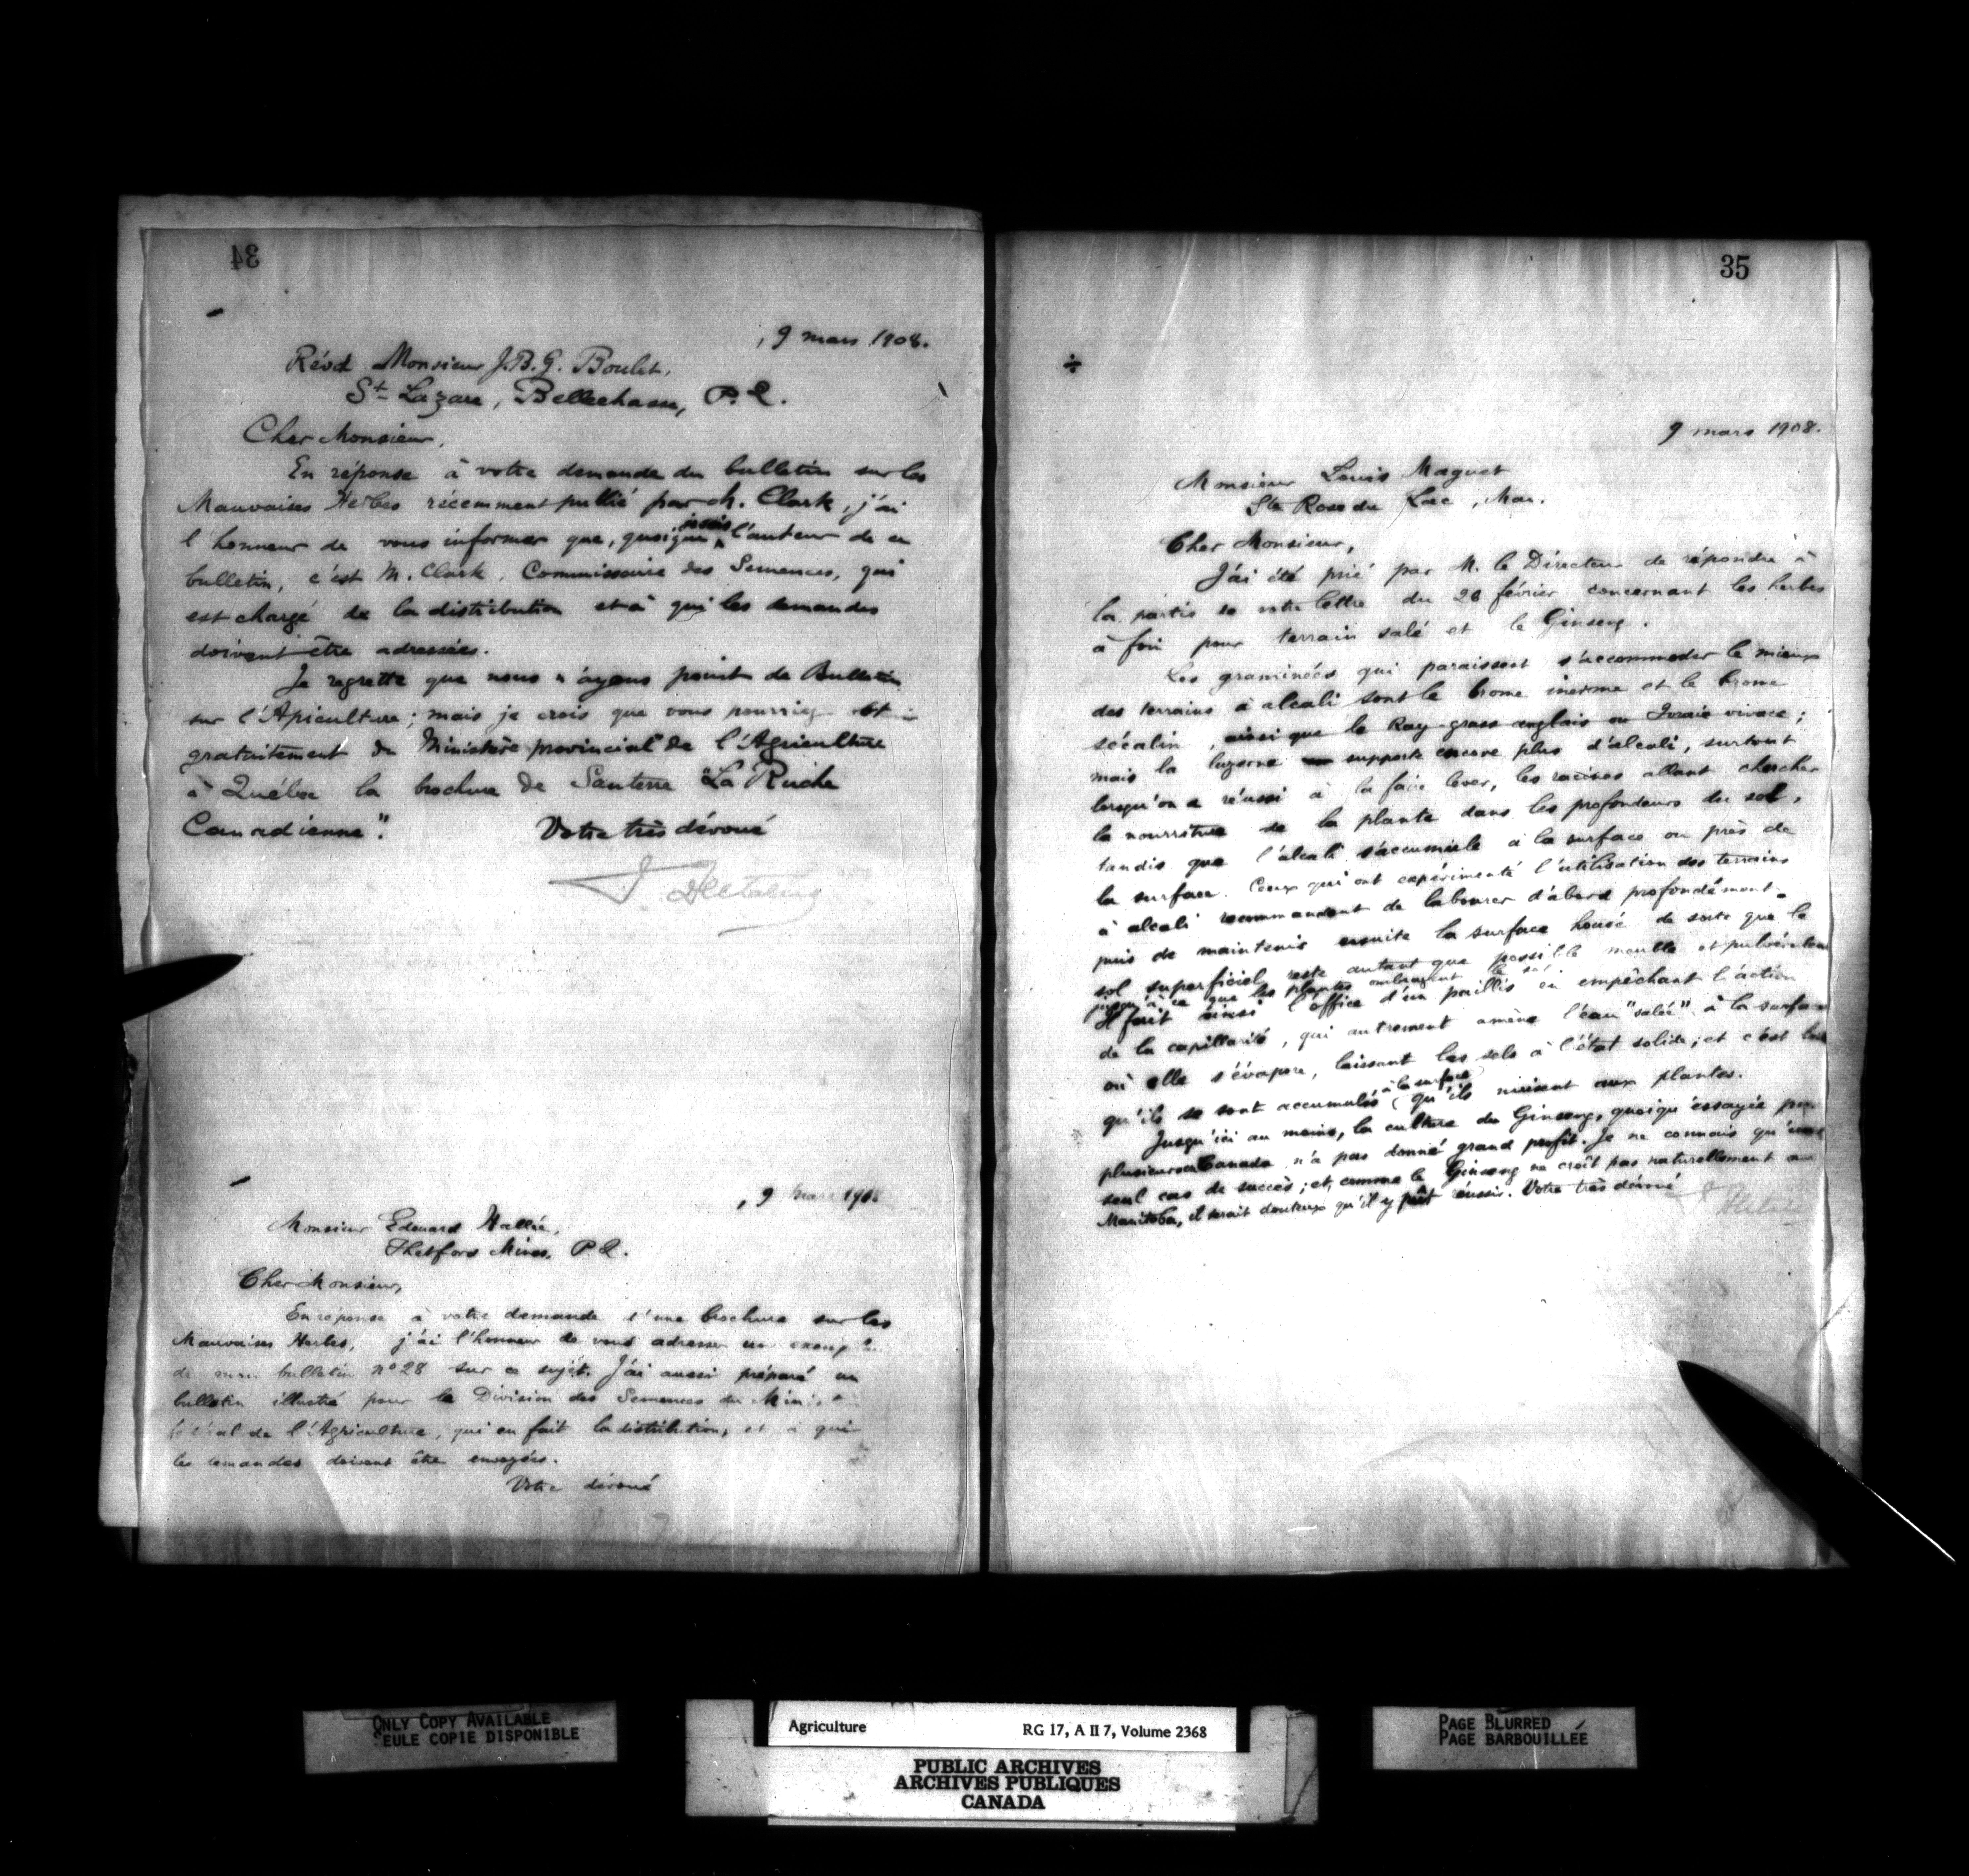 34
, 9 mars 1908.
Révd Monsieur J.B.G. Boulet,
St Lazare, Bellechasse, P.Q.
Cher Monsieur,
En réponse à votre demande du bulletin sur les
Mauvaises Herbes récemment publié par M. Clark, j'ai
l'honneur de vous informer que, quoique je sois l'auteur de ce
bulletin, c'est M. Clark, Commissaire des Semences, qui
est chargé de la distribution et à qui les demandes
doivent être adressées.
Je regrette que nous n'ayons point de Bulletin
sur l'Apiculture; mais je crois que vous pourriez
gratuitement du Ministère provincial de l'Agriculture
à Québec la brochure de Santerre "La Ruche
Canadienne". Votre très dévoué
, 9 mars 1908
Monsieur Edouard Hallée,
Thetford Mines, P.Q.
Cher Monsieur,
En réponse à votre demande d'une brochure sur les
Mauvaises Herbes, j'ai l'honneur de vous adresser un
de mon bulletin no 28 sur ce sujet. J'ai aussi préparé un
bulletin illustré pour la Division des Semences du
de l'Agriculture, qui en fait la distribution, et à qui
les demandes doivent être envoyées.
Votre dévoué
35
÷
9 mars 1908.
Monsieur Louis Maguet
Ste Rose du Lac, Man.
Cher Monsieur,
J'ai été prié par M. le Directeur de répondre à
la partie de votre lettre du 28 février concernant les herbes
à foin pour terrain salé et le Ginseng.
Les graminées qui paraissent s'accommoder le mieux
des terrains à alcali sont le brome inerme et le brome
sécalin, ainsi que le Ray-grass anglais ou Ivraie vivace;
mais la luzerne supporte encore plus d'alcali, surtout
lorsqu'on a réussi à la faire lever, les racines allant chercher
la nourriture de la plante dans les profondeurs du sol,
tandis que l'alcali s'accumule à la surface ou près de
la surface. Ceux qui ont expérimenté l'utilisation des terrains
à alcali recommandent de labourer d'abord profondément
puis de maintenir ensuite la surface de sorte que le
sol superficiel reste autant que possible meuble et pulvérulent
jusqu'à ce que les plantes ombragent le sol
Il fait ainsi l'office d'un paillis en empêchant l'action
de la capillarité, qui autrement amène l'eau "salée" à la surface
où elle s'évapore, laissant les sels à l'état solide; et c'est
à la surface
qu'ils se sont accumulés qu'ils nuisent aux plantes.
Jusqu'ici au moins, la culture du Ginseng, quoiqu'essayée par
plusieurs au Canada n'a pas donné grand profit. Je ne connais qu'un
seul cas de succès; et comme le Ginseng ne croît pas naturellement au
Manitoba, il serait douteux qu'il y pût réussir. Votre très dévoué
ONLY COPY AVAILABLE
SEULE COPIE DISPONIBLE
Agriculture RG 17, A II 7, Volume 2368
PUBLIC ARCHIVES
ARCHIVES PUBLIQUES
CANADA
PAGE BLURRED
PAGE BARBOUILLÉE